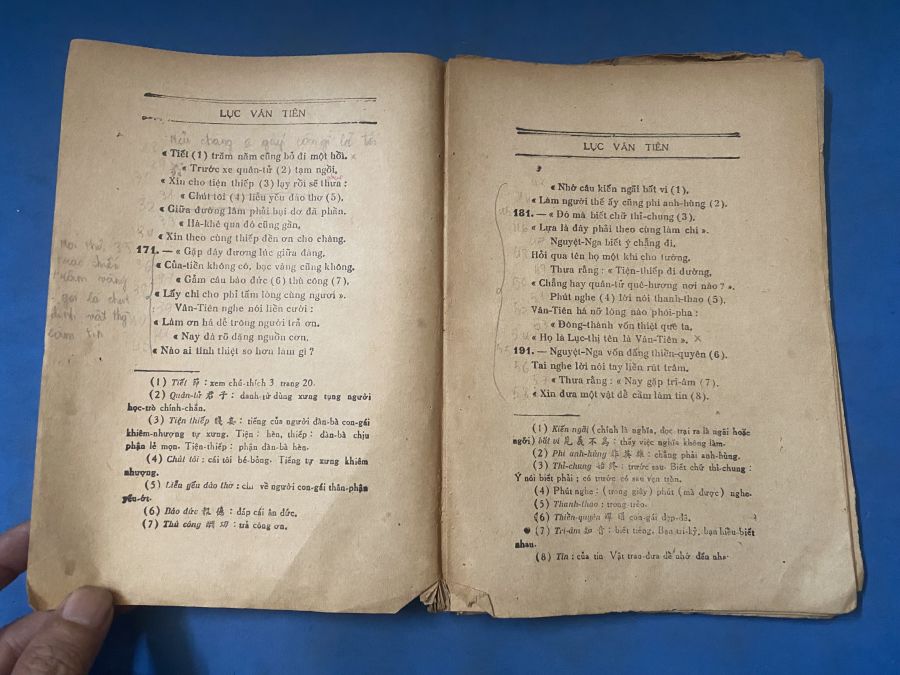 LỤC VÂN TIÊN
« Tiết (1) trăm năm cũng bỏ đi một hồi.
« Trước xe quân-tử (2) tạm ngồi,
« Xin cho tiện thiếp (3) lạy rồi sẽ thưa :
« Chút tôi (4) liễu yếu đào thơ (5).
« Giữa đường lâm phải bụi dơ đã phần.
« Hà-khê qua đó cũng gần,
« Xin theo cùng thiếp đền ơn cho chàng.
171. — « Gặp đây đương lúc giữa đàng.
« Của-tiền không có, bạc vàng cũng không.
« Gẫm câu báo đức (6) thù công (7).
« Lấy chi cho phỉ tấm lòng cùng ngươi ».
Vân-Tiên nghe nói liền cười :
« Làm ơn há dễ trông người trả ơn.
« Nay đà rõ đặng nguồn cơn.
« Nào ai tính thiệt so hơn làm gì ?
(1) Tiết 節 : xem chú-thích 3 trang 20.
(2) Quân-tử 君子 : danh-từ dùng xưng tụng người
học-trò chính-chắn.
(3) Tiện thiếp 賤妾 : tiếng của người đàn-bà con-gái
khiêm-nhượng tự xưng. Tiện : hèn, thiếp : đàn-bà chịu
phận lẽ mọn. Tiện-thiếp : phận đàn-bà hèn.
(4) Chút tôi : cái tôi bé-bỏng. Tiếng tự xưng khiêm
nhượng.
(5) Liễu yếu đào thơ : chỉ về người con-gái thân-phận
yếu-ớt.
(6) Báo đức : đáp cái ân đức.
(7) Thù công : trả công ơn.
LỤC VÂN TIÊN
« Nhớ câu kiến ngãi bất vi (1),
« Làm người thế ấy cũng phi anh-hùng (2).
181. — « Đó mà biết chữ thỉ-chung (3).
« Lựa là đây phải theo cùng làm chi ».
Nguyệt-Nga biết ý chẳng đi,
Hỏi qua tên họ một khi cho tường.
Thưa rằng : « Tiện-thiếp đi đường,
« Chẳng hay quân-tử quê-hương nơi nào ? ».
Phút nghe (4) lời nói thanh-thao (5).
Vân-Tiên há nỡ lòng nào phôi-pha :
« Đông-thành vốn thiệt quê ta,
« Họ là Lục-thị tên là Vân-Tiên ».
191. — Nguyệt-Nga vốn đấng thiền-quyên (6).
Tai nghe lời nói tay liền rút trâm.
Thưa rằng : « Nay gặp tri-âm (7).
« Xin đưa một vật để cầm làm tin (8).
(1) Kiến ngãi (chính là nghĩa, đọc trại ra là ngãi hoặc
ngỡi) bất vi 見義不爲 : thấy việc nghĩa không làm.
(2) Phi anh-hùng 非英雄 : chẳng phải anh-hùng.
(3) Thỉ-chung 始終 : trước sau. Biết chữ thỉ-chung :
Ý nói biết phải ; có trước có sau vẹn tròn.
(4) Phút nghe : (trong giây) phút (mà được) nghe.
(5) Thanh-thao : trong-trẻo.
(6) Thiền-quyên : con-gái đẹp-đẽ.
(7) Tri-âm 知音 : biết tiếng. Bạn tri-kỷ, bạn hiểu-biết
nhau.
(8) Tin : của tin. Vật trao đưa để nhớ đến nhau.